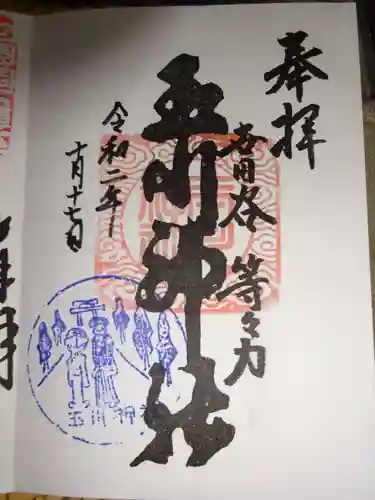 奉拝
世田谷 等々力
玉川神社
令和二年
十月十七日
玉川神社